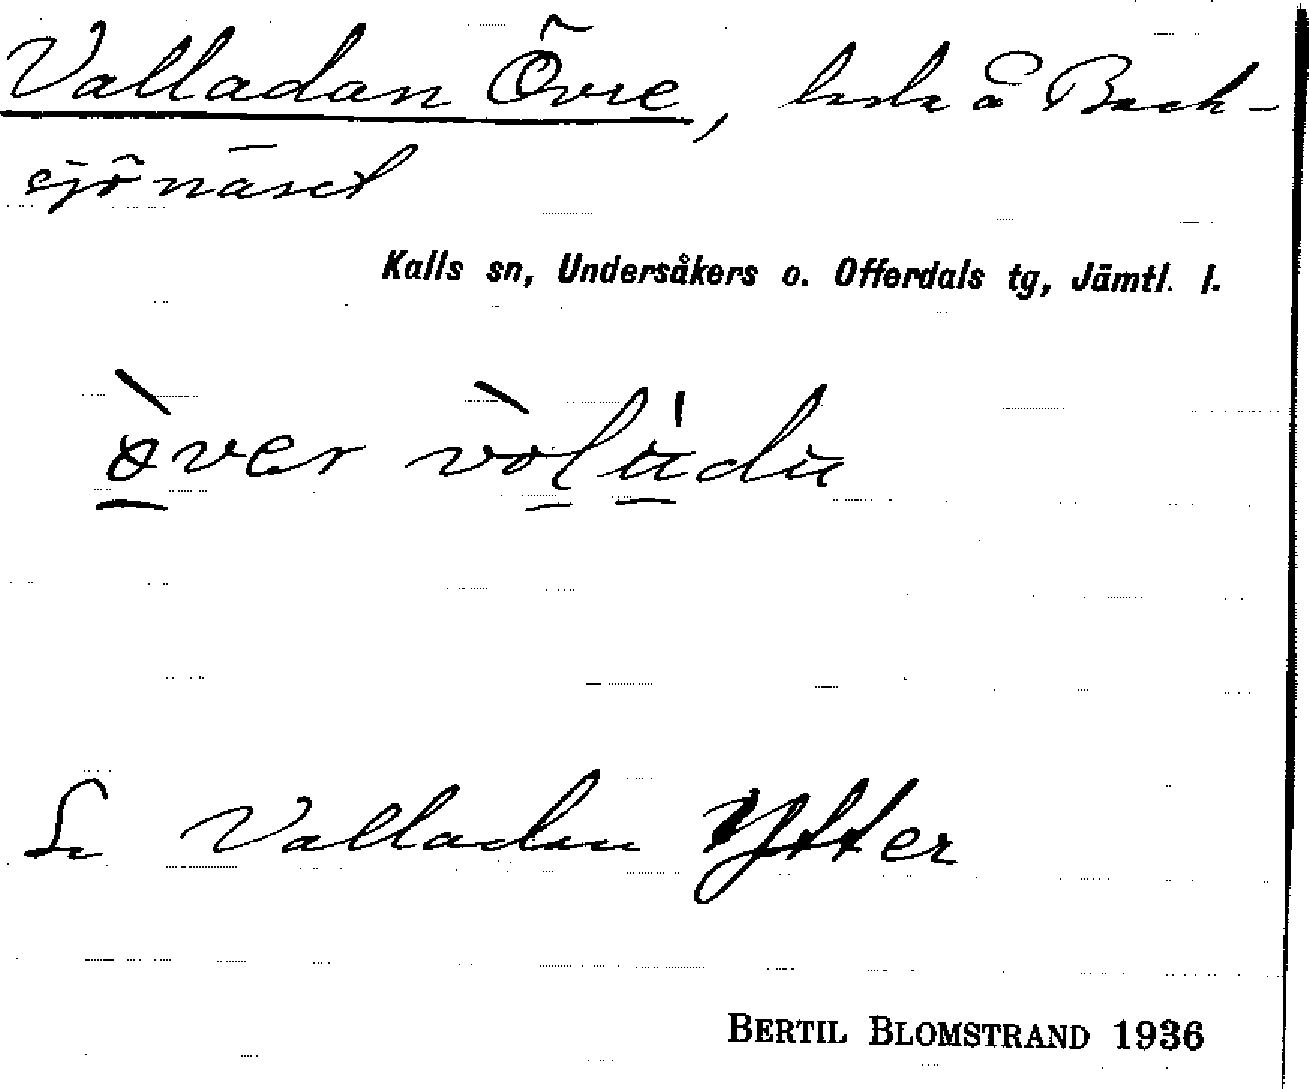 Valladan Övre, å Back-
sjönäset
Kalls sn, Undersåkers o. Offerdals tg, Jämtl. l.
över
Se Valladan Ytter
BERTIL BLOMSTRAND 1936